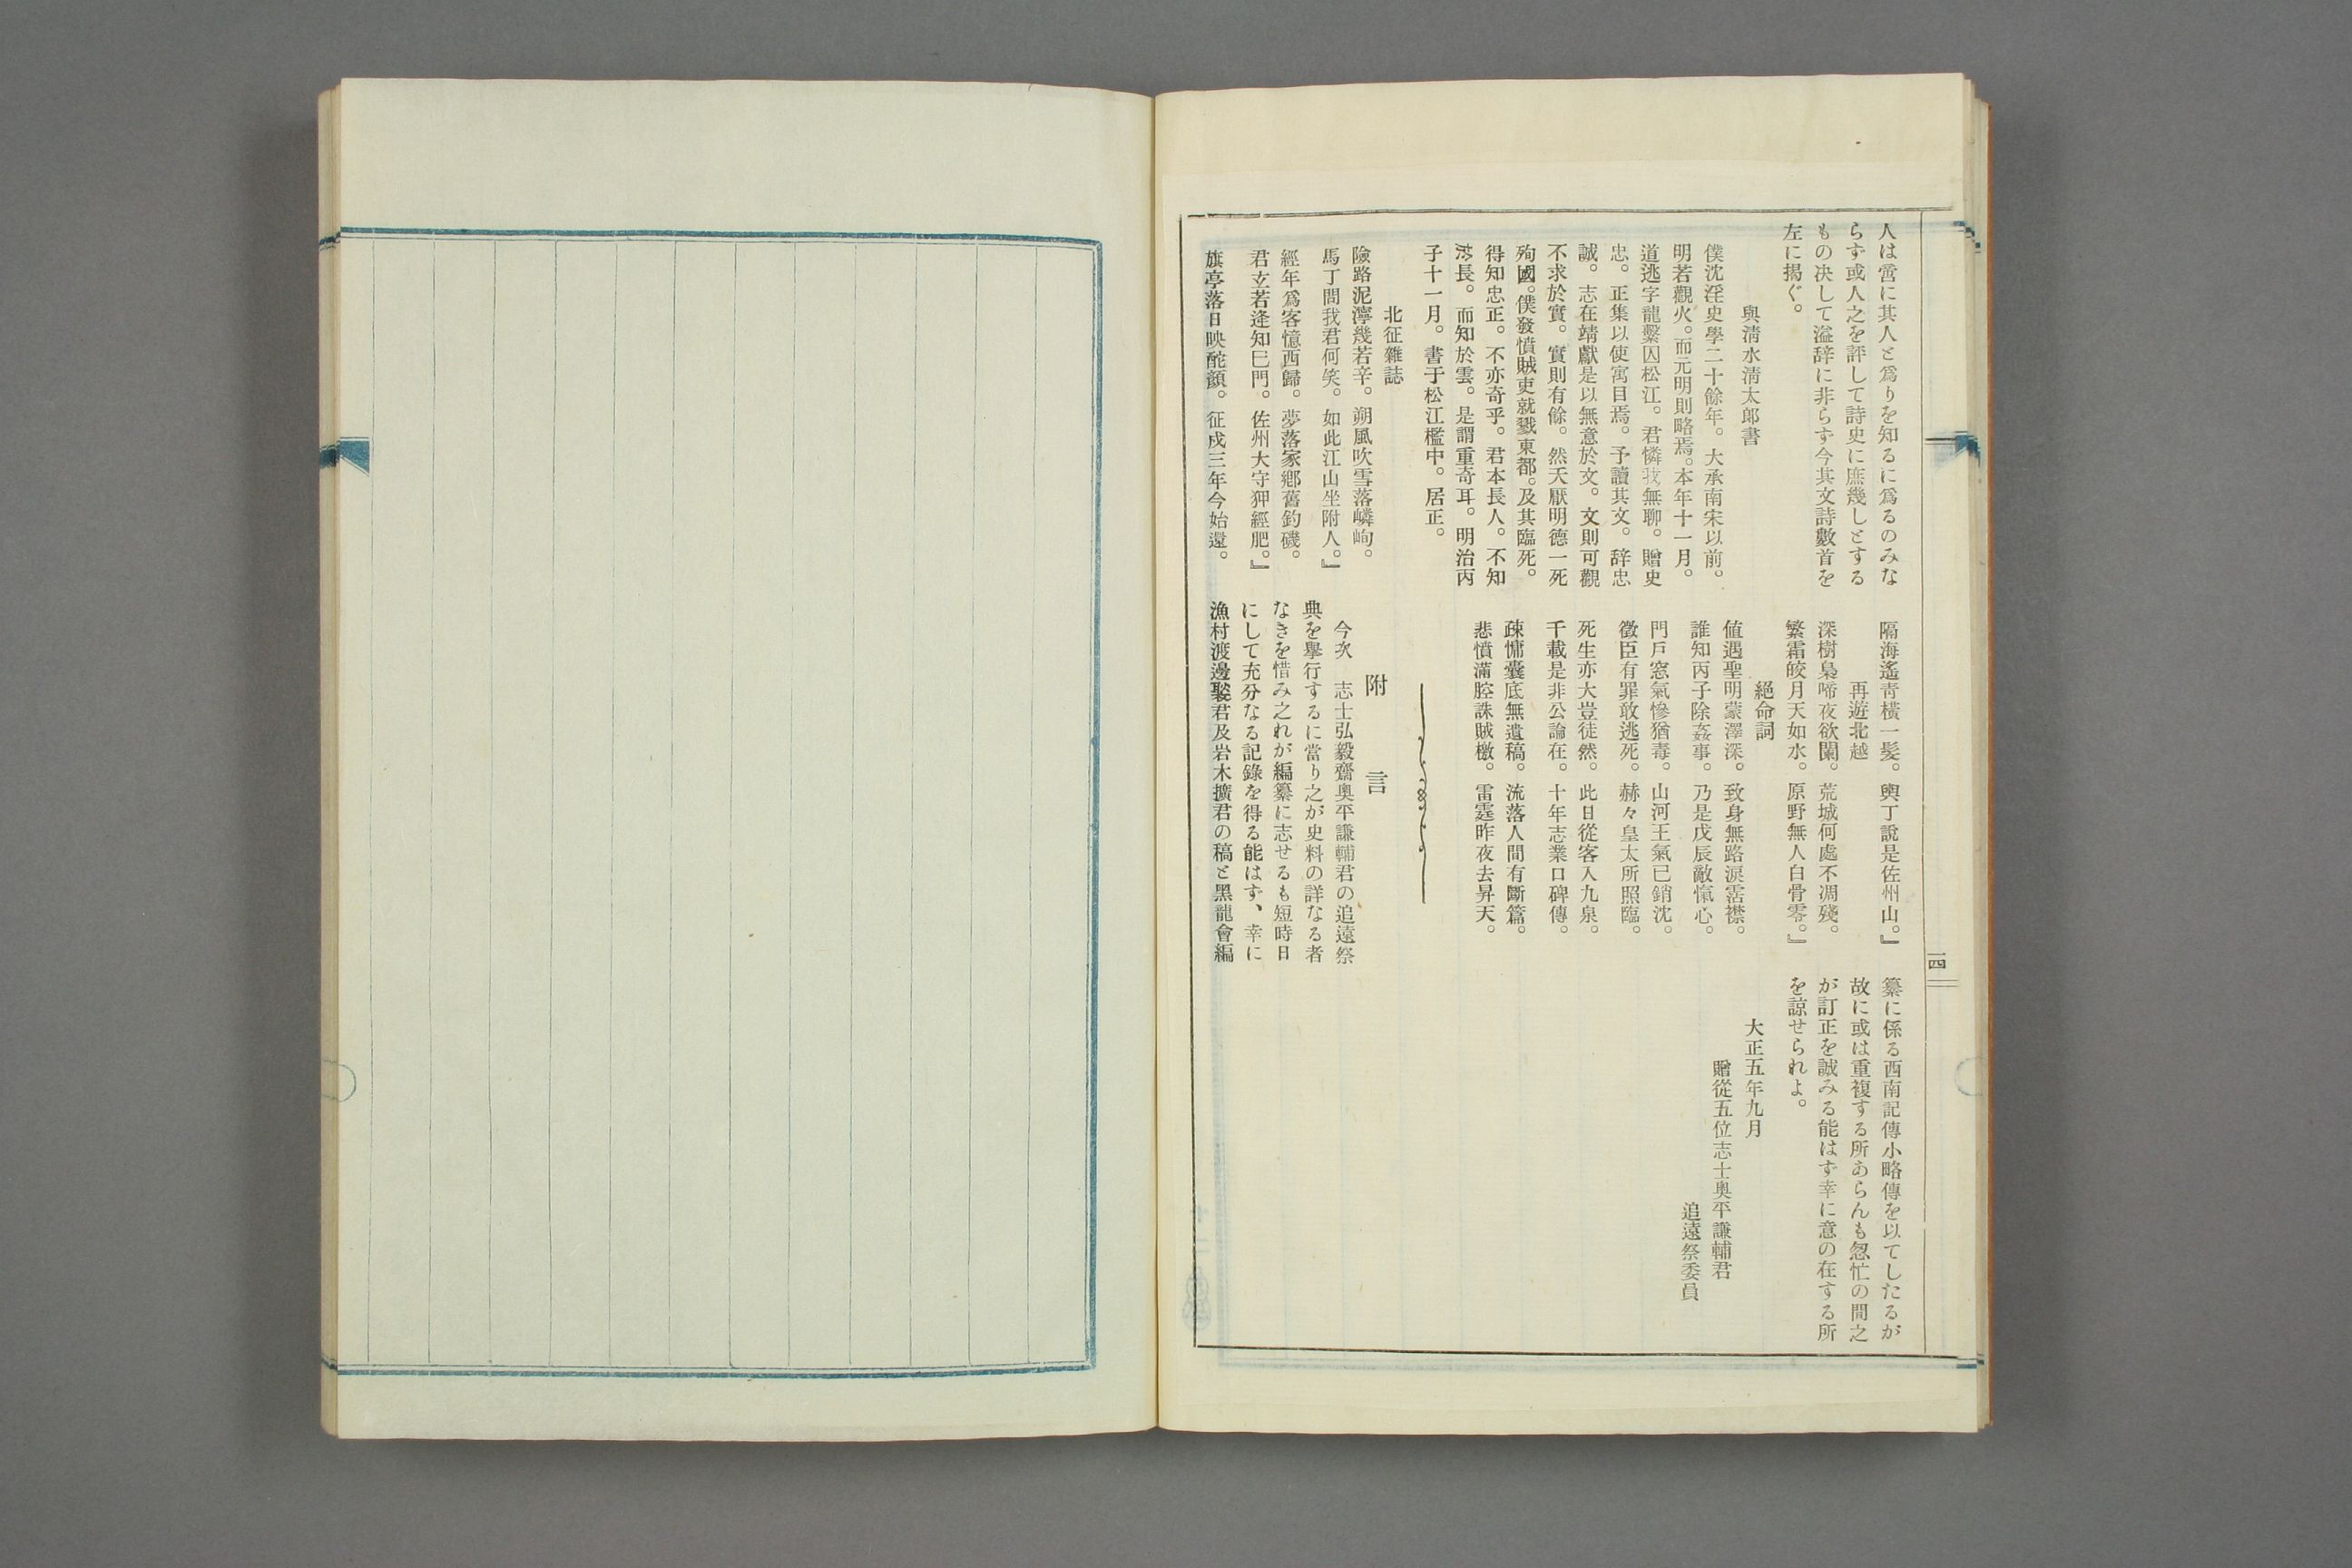 人は啻に其人と爲りを知るに爲るのみな
らず或人之を評して詩史に庶幾しとする
もの決して溢辞に非らず今其文詩數首を
左に揭ぐ。
與淸水淸太郎書
僕沈淫史學二十餘年。大承南宋以前。
明若觀火。而元明則略焉。本年十一月。
道逃字龍繫囚松江。君憐我無聊。贈史
忠。正集以使寓目焉。予讀其文。辞忠
誠。志在靖獻是以無意於文。文則可觀
不求於實。實則有餘。然天厭明德一死
殉國。僕發憤賊吏就戮東都。及其臨死。
得知忠正。不亦奇乎。君本長人。不知
長。而知於雲。是謂重奇耳。明治丙
子十一月。書于松江檻中。居正。
北征雜誌
險路泥濘幾若辛。朔風吹雪落嶙峋。
馬丁問我君何笑。如此江山坐附人。』
經年爲客憶西歸。夢落家鄕舊釣磯。
君玄若逢知巳門。佐州大守狎經肥。』
旗亭落日映酡顏。征戍三年今始還。
隔海遙靑橫一髮。輿丁說是佐州山。』
再遊北越
深樹梟啼夜欲闌。荒城何處不凋殘。
繁霜皎月天如水。原野無人白骨零。』
絕命詞
値遇聖明蒙澤深。致身無路淚霑襟。
誰知丙子除姦事。乃是戊辰敵愾心。
門戶窓氣慘猶毒。山河王氣已銷沈。
徵臣有罪敢逃死。赫々皇太所照臨。
死生亦大豈徒然。此日從客入九泉。
千載是非公論在。十年志業口碑傳。
疎慵囊底無遺稿。流落人間有斷篇。
悲憤滿腔誅賊檄。雷霆昨夜去昇天。
附言
今次 志士弘毅齋奧平謙輔君の追遠祭
典を擧行するに當り之が史料の詳なる者
なきを惜み之れが編纂に志せるも短時日
にして充分なる記錄を得る能はず、幸に
漁村渡邊君及岩木擴君の稿と黑龍會編
纂に係る西南記傳小略傳を以てしたるが
故に或は重複する所あらんも怱忙の間之
が訂正を誠みる能はず幸に意の在する所
を諒せられよ。
大正五年九月
贈從五位志士奧平謙輔君
追遠祭委員
一四